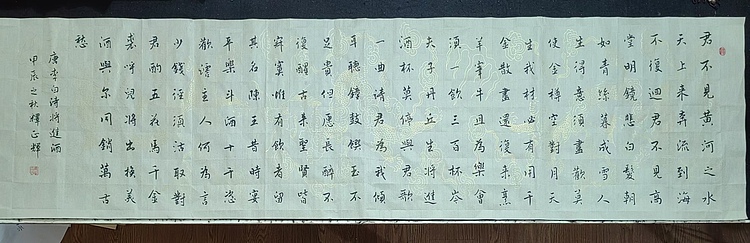 君不見黃河之水
天上來奔流到海
不復迴君不見高
堂明鏡悲白髮朝
如青絲暮成雪人
生得意須盡歡莫
使金樽空對月天
生我材必有用千
金散盡還復來烹
羊宰牛且為樂會
須一飲三百杯岑
夫子丹丘生將進
酒杯莫停與君歌
一曲請君為我傾
耳聽鐘鼓饌玉不
足貴但願長醉不
復醒古來聖賢皆
寂寞惟有飲者留
其名陳王昔時宴
平樂斗酒十千恣
歡謔主人何為言
少錢徑須沽取對
君酌五花馬千金
裘呼兒將出換美
酒與爾同銷萬古
愁
唐李白詩將進酒
甲辰之秋正輝